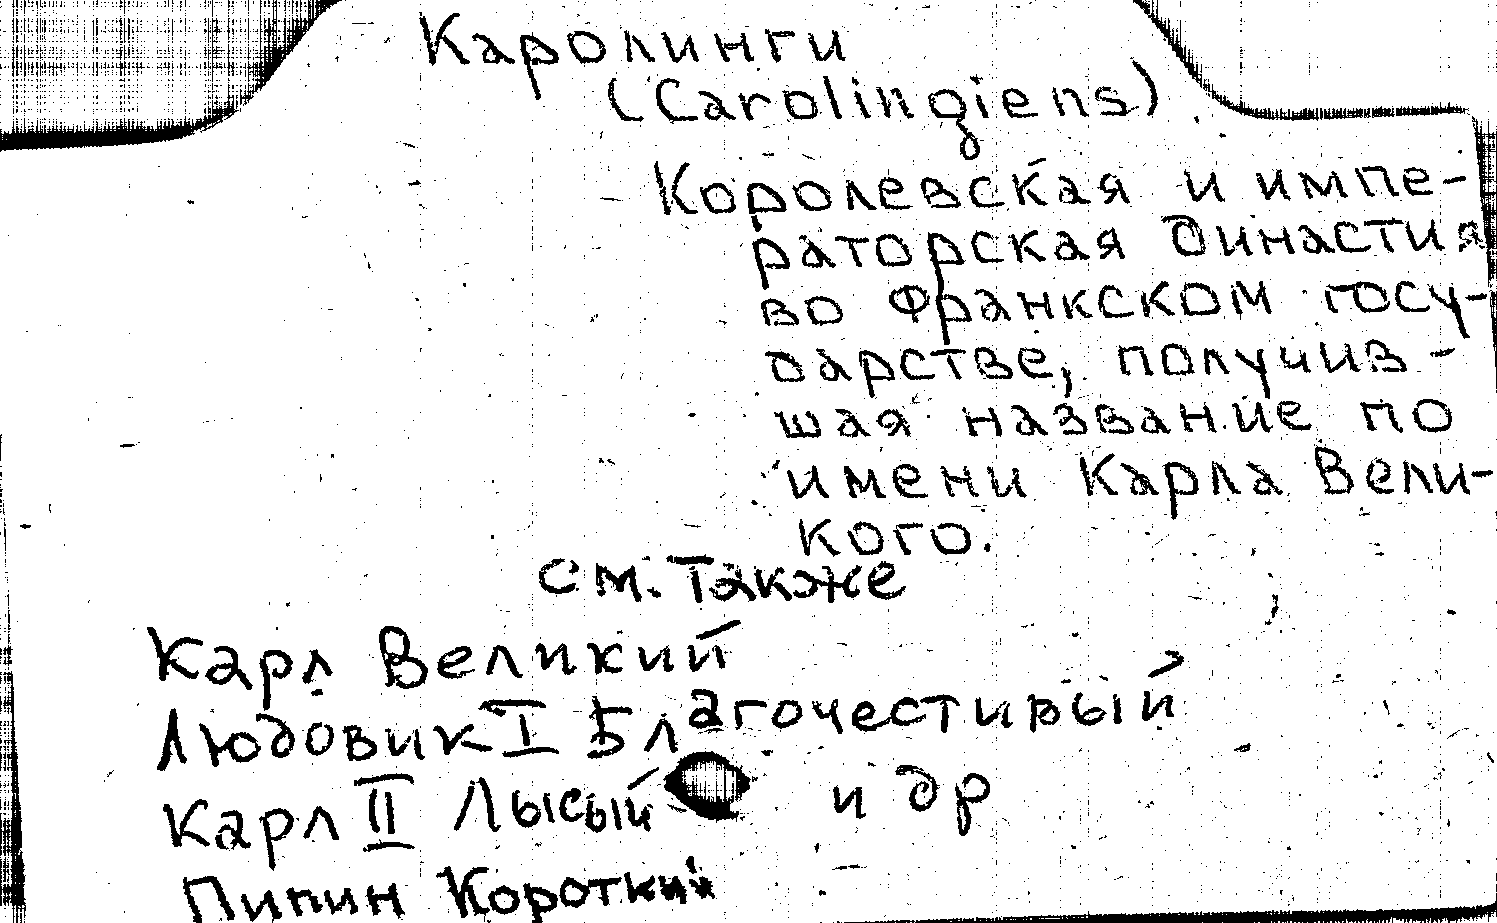 Каролинги
(Carolingiens)
Королевская и импе-
раторская династия
во Франкском госу-
дарстве, получив-
шая название по
имени Карла Вели-
кого.
см. Также
Карл Великий
Людовик I Благочестивый
Карл II Лысый и др
Пипин Короткий